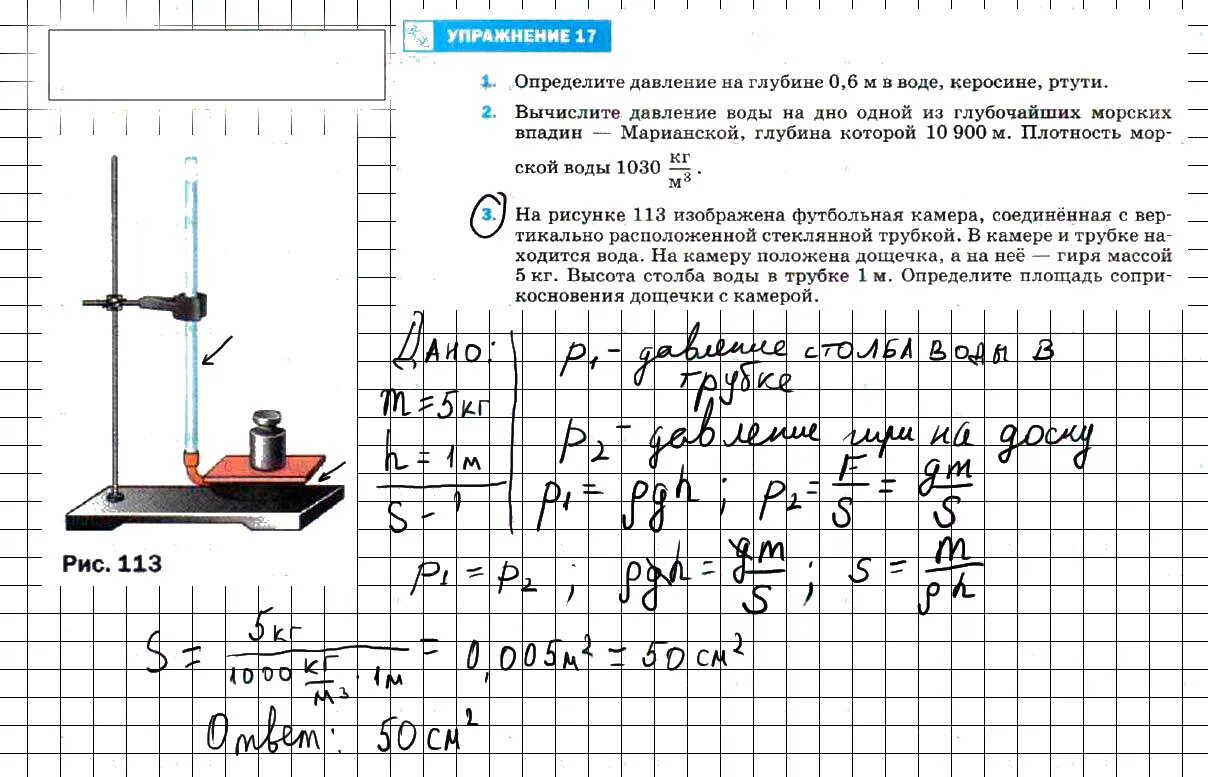 УПРАЖНЕНИЕ 17
1. Определите давление на глубине 0,6 м в воде, керосине, ртути.
2. Вычислите давление воды на дно одной из глубочайших морских
впадин — Марианской, глубина которой 10 900 м. Плотность мор-
ской воды 1030 кг/м³.
3. На рисунке 113 изображена футбольная камера, соединённая с вер-
тикально расположенной стеклянной трубкой. В камере и трубке на-
ходится вода. На камеру положена дощечка, а на неё — гиря массой
5 кг. Высота столба воды в трубке 1 м. Определите площадь сопри-
косновения дощечки с камерой.
Рис. 113
Дано:
m = 5 кг
h = 1 м
S - ?
p₁ - давление столба воды в
трубке
p₂ - давление гири на доску
p₁ = ρgh ; p₂ = F/S = gm/S
p₁ = p₂ ; ρgh = gm/S ; S = m/ρh
S = 5 кг/(1000 кг/м³ · 1 м) = 0,005 м² = 50 см²
Ответ: 50 см²